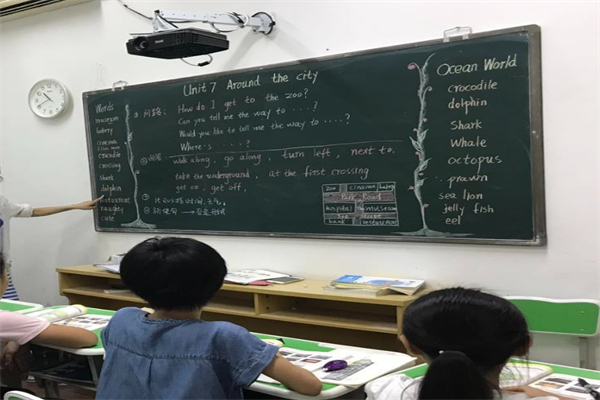 Unit 7 Around the city
Words
museum
bakery
cinema
crocodile
crossing
shark
dolphin
restaurant
naughty
cute
① 问路: How do I get to the zoo?
Can you tell me the way to ·····?
Would you like to tell me the way to ·····?
Where's ······?
walk along, go along, turn left, next to.
take the underground, at the first crossing
get on, get off.
zoo cinema bakery
Park Road
hospital museum
bank restaurant
Ocean World
crocodile
dolphin
Shark
Whale
octopus
prawn
sea lion
jelly fish
eel